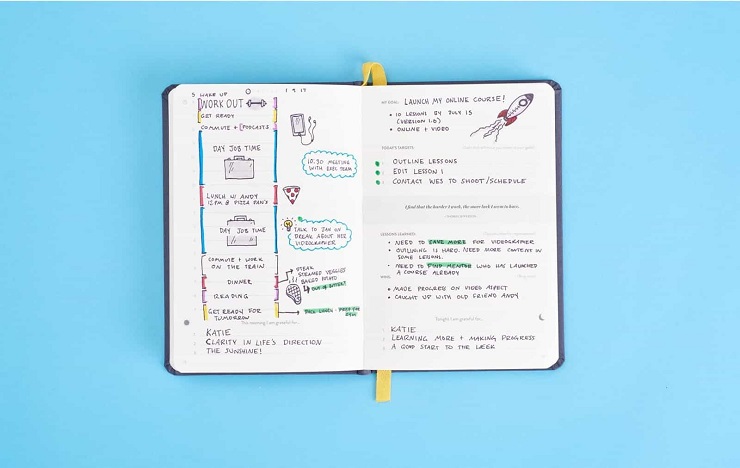 5 WAKE UP
WORK OUT
GET READY
COMMUTE + PODCASTS
DAY JOB TIME
10:30 MEETING
WITH EXEC TEAM
LUNCH W/ ANDY
12 PM @ PIZZA PAN'S
DAY JOB TIME
TALK TO JAN ON
BREAK ABOUT HER
VIDEOGRAPHER
COMMUTE + WORK
ON THE TRAIN
DINNER
STEAK
STEAMED VEGGIES
BAKED POTATO
OUT OF BUTTER!
READING
GET READY FOR
TOMORROW
This morning I am grateful for...
KATIE
CLARITY IN LIFE'S DIRECTION
THE SUNSHINE!
MY GOAL: LAUNCH MY ONLINE COURSE!
• 10 LESSONS BY JULY 15
(VERSION 1.0)
• ONLINE + VIDEO
TODAY'S TARGETS:
OUTLINE LESSONS
EDIT LESSON 1
CONTACT WES TO SHOOT/SCHEDULE
I find that the harder I work, the more luck I seem to have.
LESSONS LEARNED:
• NEED TO SAVE MORE FOR VIDEOGRAPHER
• OUTLINING IS HARD. NEED MORE CONTENT IN
SOME LESSONS.
• NEED TO FIND MENTOR WHO HAS LAUNCHED
A COURSE ALREADY
WINS:
• MADE PROGRESS ON VIDEO ASPECT
• CAUGHT UP WITH OLD FRIEND ANDY
Tonight I am grateful for...
KATIE
LEARNING MORE + MAKING PROGRESS
A GOOD START TO THE WEEK